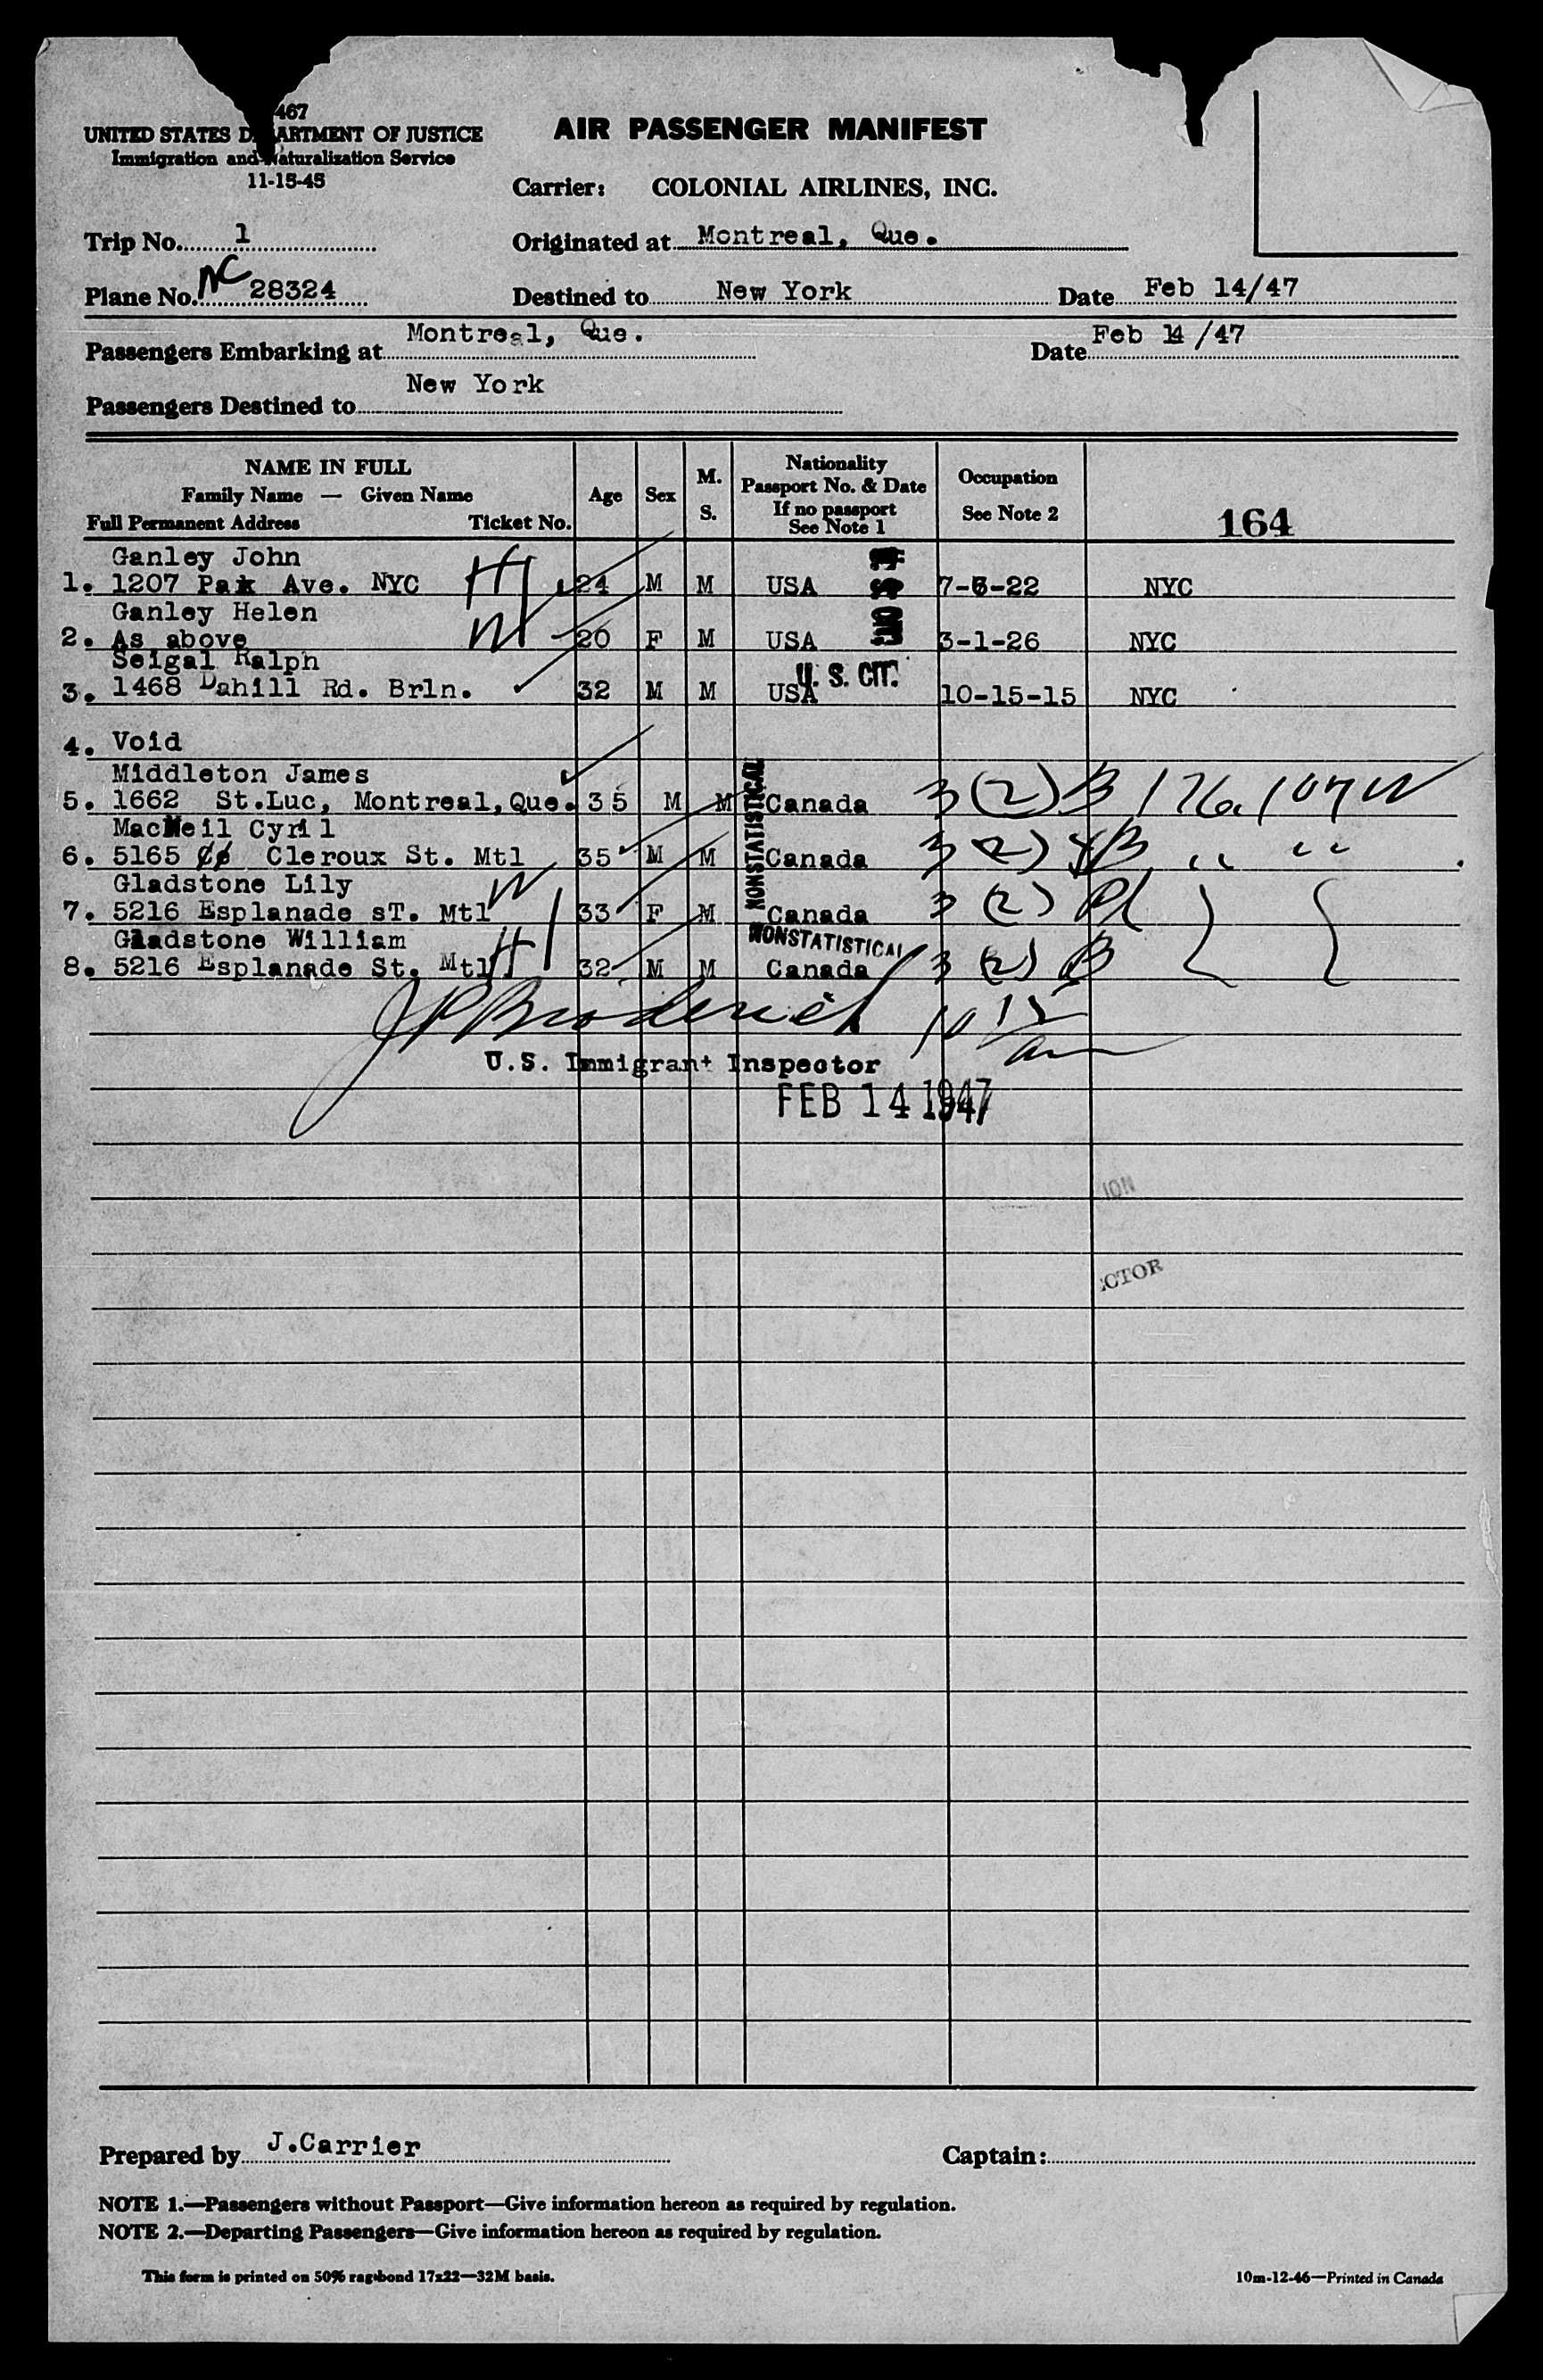 467
UNITED STATES DEPARTMENT OF JUSTICE
Immigration and Naturalization Service
11-15-45
AIR PASSENGER MANIFEST
Carrier: COLONIAL AIRLINES, INC.
Trip No. 1
Originated at Montreal, Que.
Plane No. NC 28324
Destined to New York
Date Feb 14/47
Passengers Embarking at Montreal, Que.
Date Feb 14/47
Passengers Destined to New York
NAME IN FULL
Family Name — Given Name
Full Permanent Address Ticket No.
Age
Sex
M.
S.
Nationality
Passport No. & Date
If no passport
See Note 1
Occupation
See Note 2
164
Ganley John
1. 1207 Pak Ave. NYC H 24 M M USA 7-6-22 NYC
Ganley Helen
2. As above W 20 F M USA 3-1-26 NYC
Seigal Ralph
3. 1468 Dahill Rd. Brln. 32 M M USA U. S. CIT. 10-15-15 NYC
4. Void
Middleton James
5. 1662 St.Luc, Montreal,Que. 35 M M Canada 3 (2) B
NONSTATISTICAL
MacNeil Cyril
6. 5165 Cleroux St. Mtl 35 M M Canada 3 (2) B " "
Gladstone Lily
7. 5216 Esplanade sT. Mtl W 33 F M Canada 3 (2)
NONSTATISTICAL
Gladstone William
8. 5216 Esplanade St. Mtl H 32 M M Canada 3 (2) B
JP Broderick 10 15 am
U.S. Immigrant Inspector
FEB 14 1947
ION
CTOR
Prepared by J.Carrier
Captain:
NOTE 1.—Passengers without Passport—Give information hereon as required by regulation.
NOTE 2.—Departing Passengers—Give information hereon as required by regulation.
This form is printed on 50% rag bond 17x22—32M basis.
10m-12-46—Printed in Canada